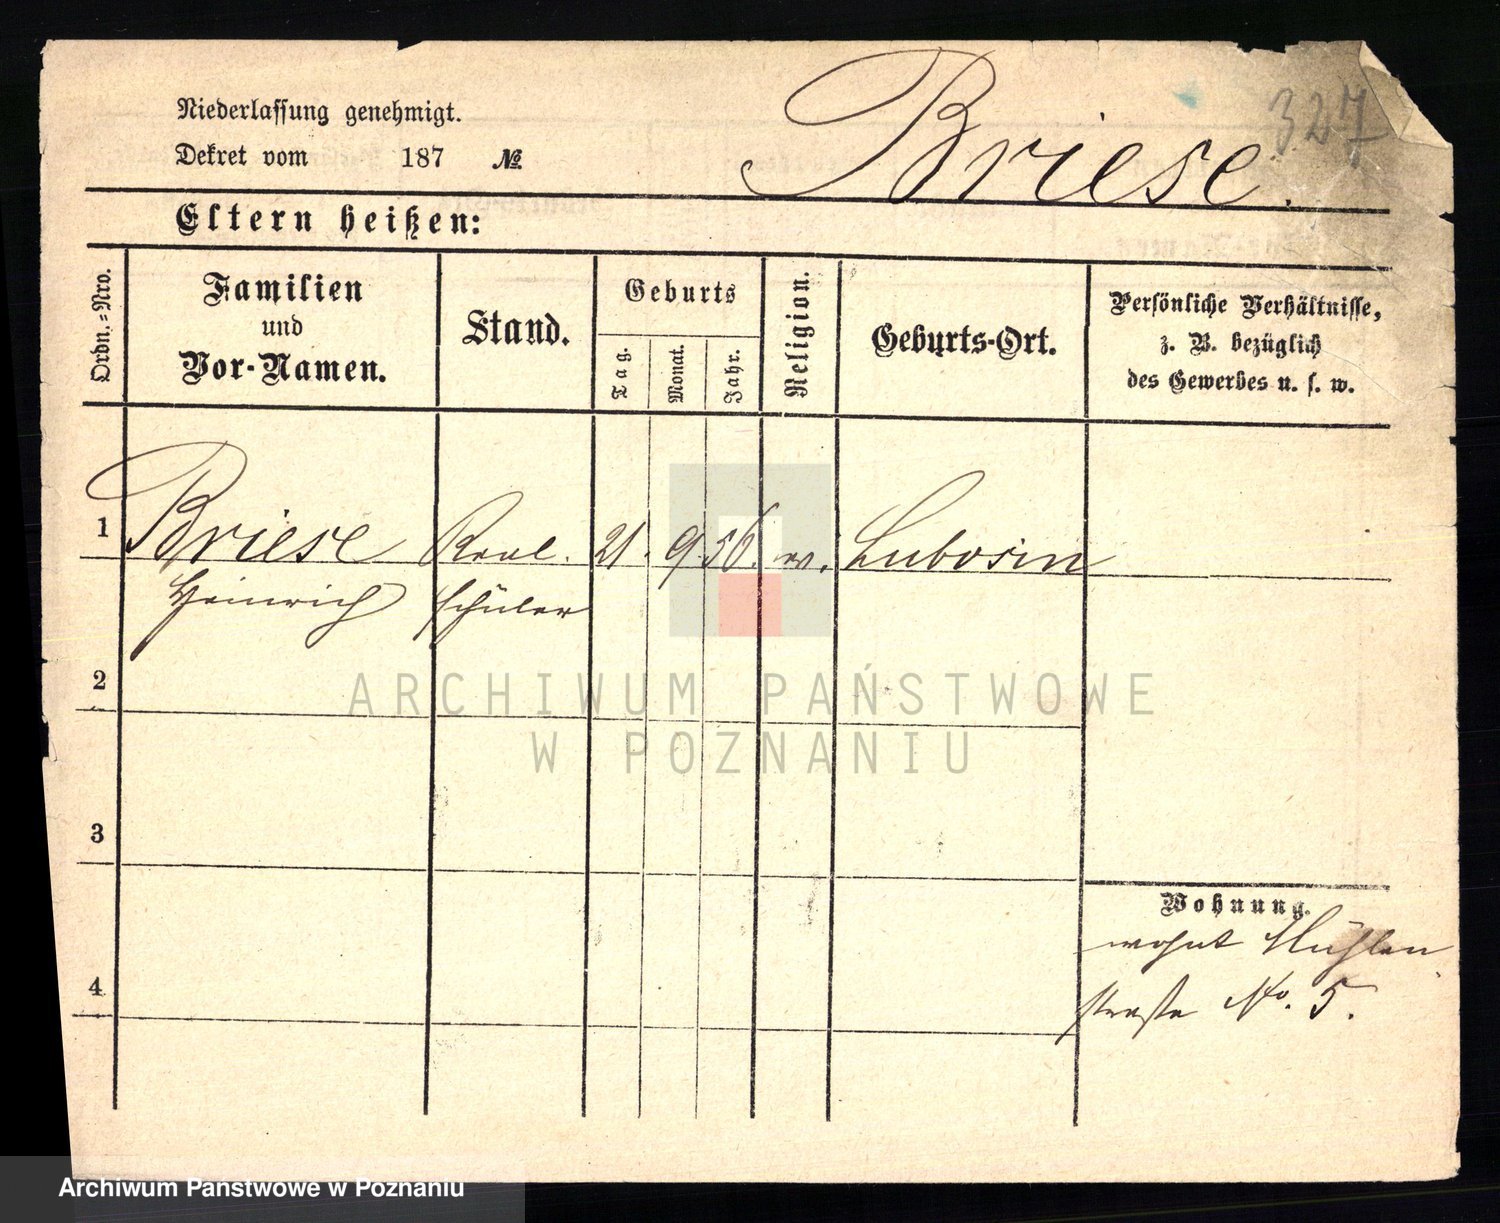 327
Niederlassung genehmigt.
Dekret vom 187 №
Briese.
Eltern heißen:
Ordn.-Nro.
Familien
und
Vor-Namen.
Stand.
Geburts
Tag.
Monat.
Jahr.
Religion.
Geburts-Ort.
Persönliche Verhältnisse,
z. B. bezüglich
des Gewerbes u. s. w.
1 Briese Real. 21. 9. 56. ev. Lubosin
Heinrich schüler
2
3
4
Wohnung.
wohnt Mühlen
straße No. 5.
ARCHIWUM PAŃSTWOWE
W POZNANIU
Archiwum Państwowe w Poznaniu